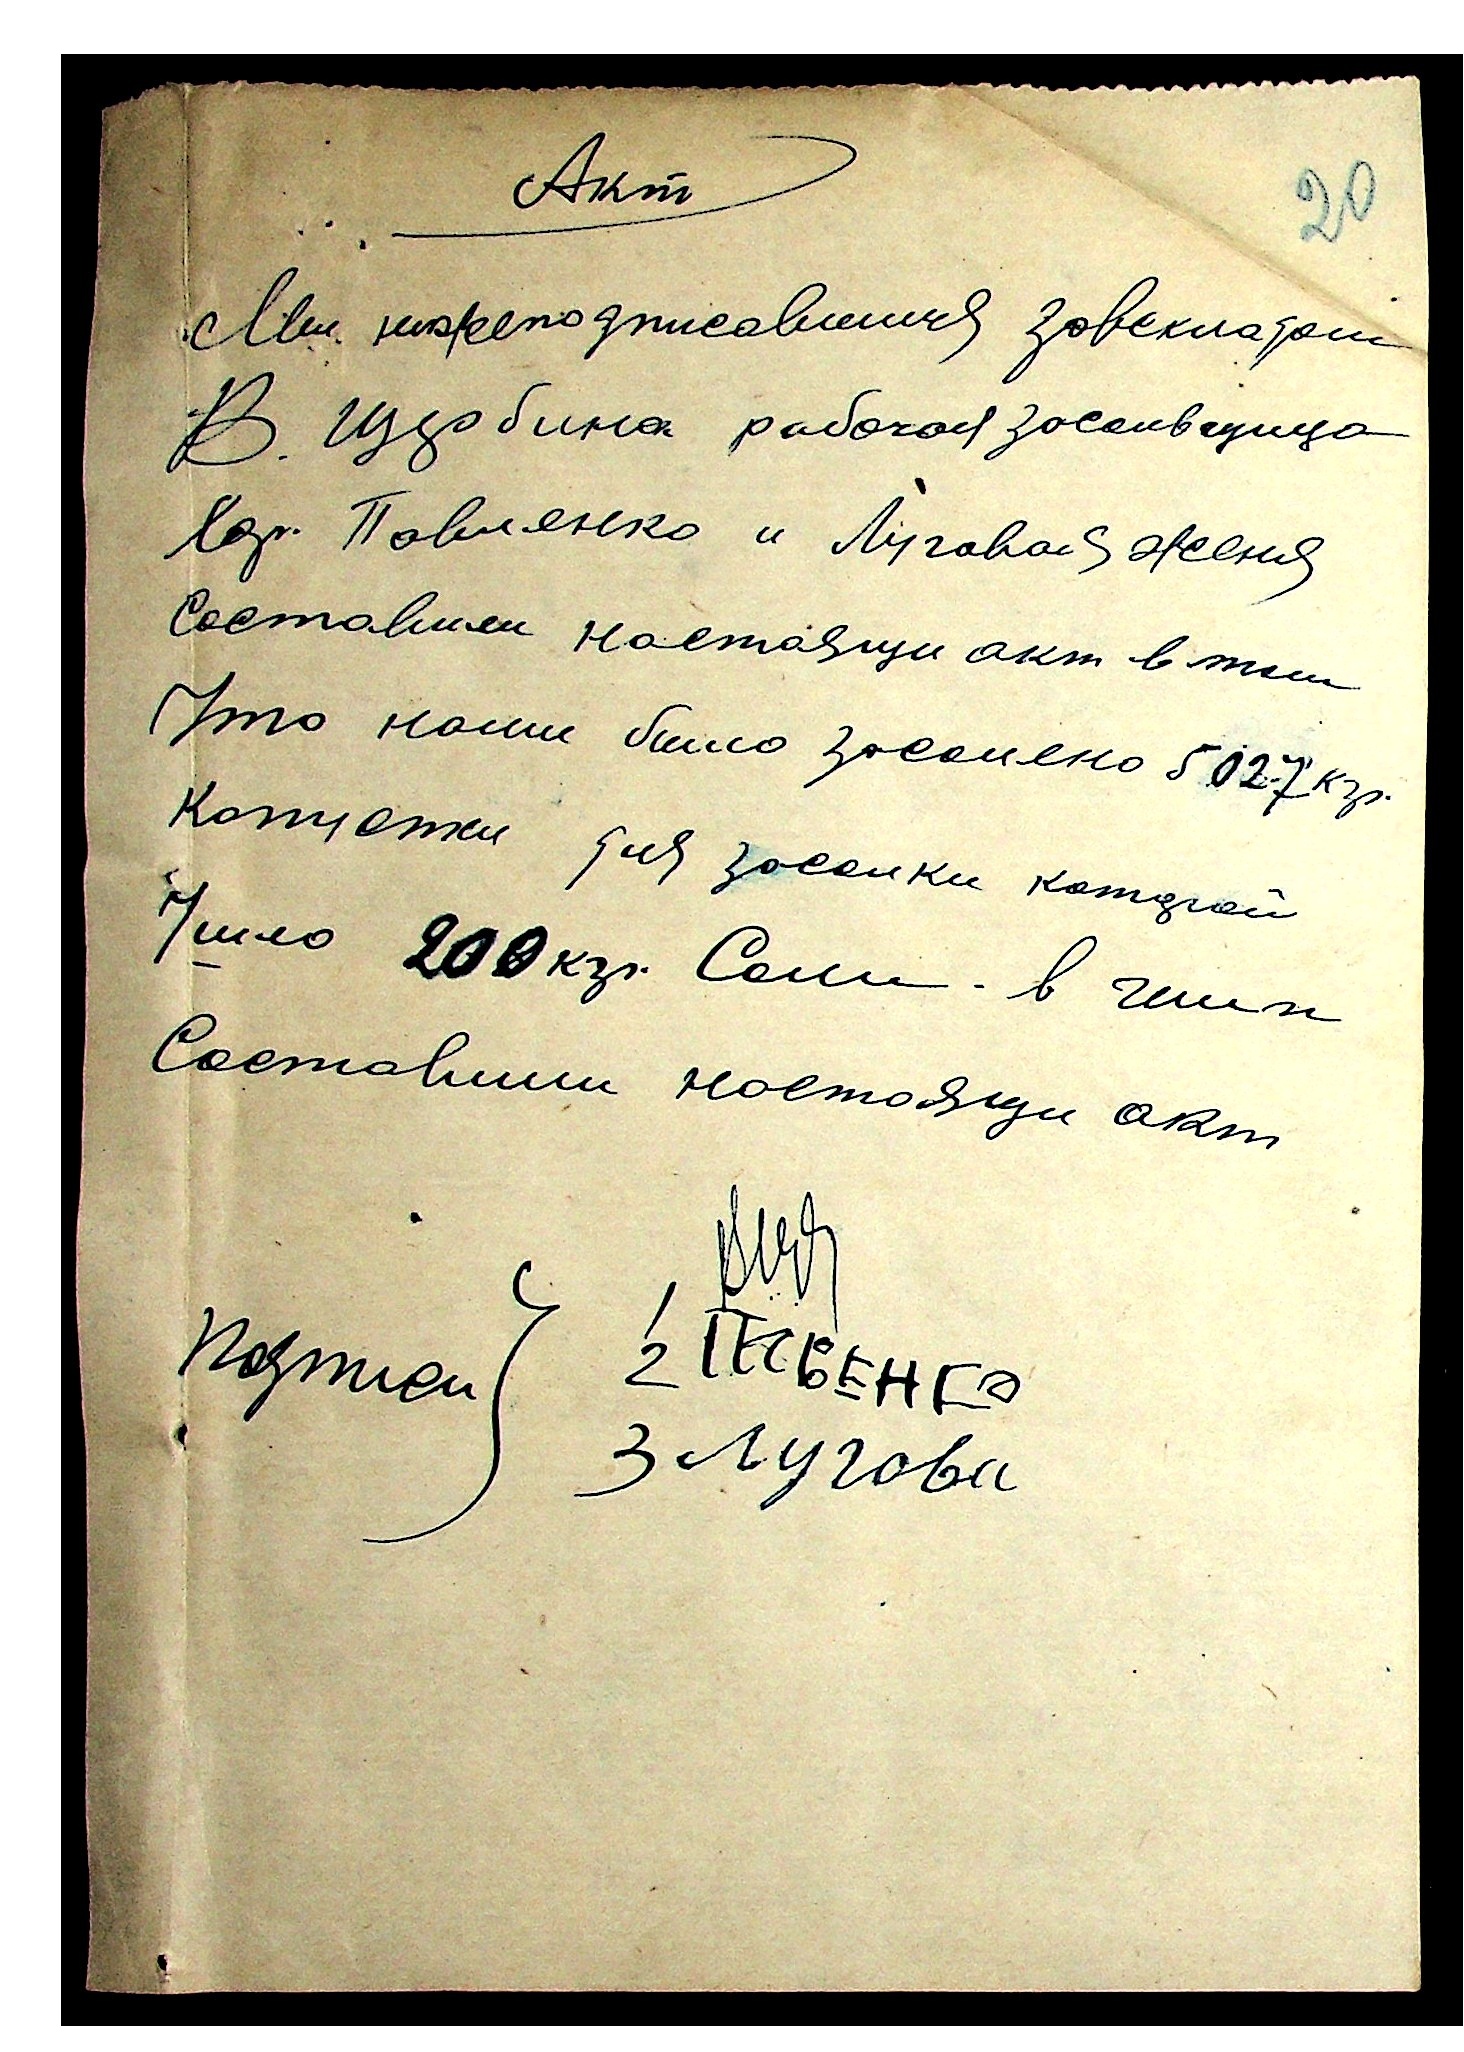 Акт
20
Мы нижеподписавшися завскладом
В. Щодобина рабочая засолвщица
Хар. Павленко и Луговая Женя
Составили настоящи акт в том
Что нами было засолено 5027 кгр.
Капусты для засолки которой
Ушло 200 кгр. Соли. в чим и
Составили настоящи акт
Подписи
1
2 ПАВЕНКО
3 Лугова